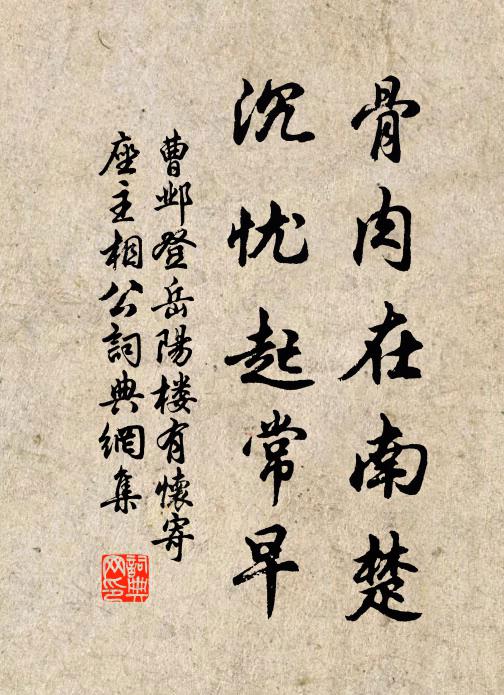 骨肉在南楚
沉忧起常早
曹邺登岳陽楼有懷寄
座主相公詞典網集
詞典
网印